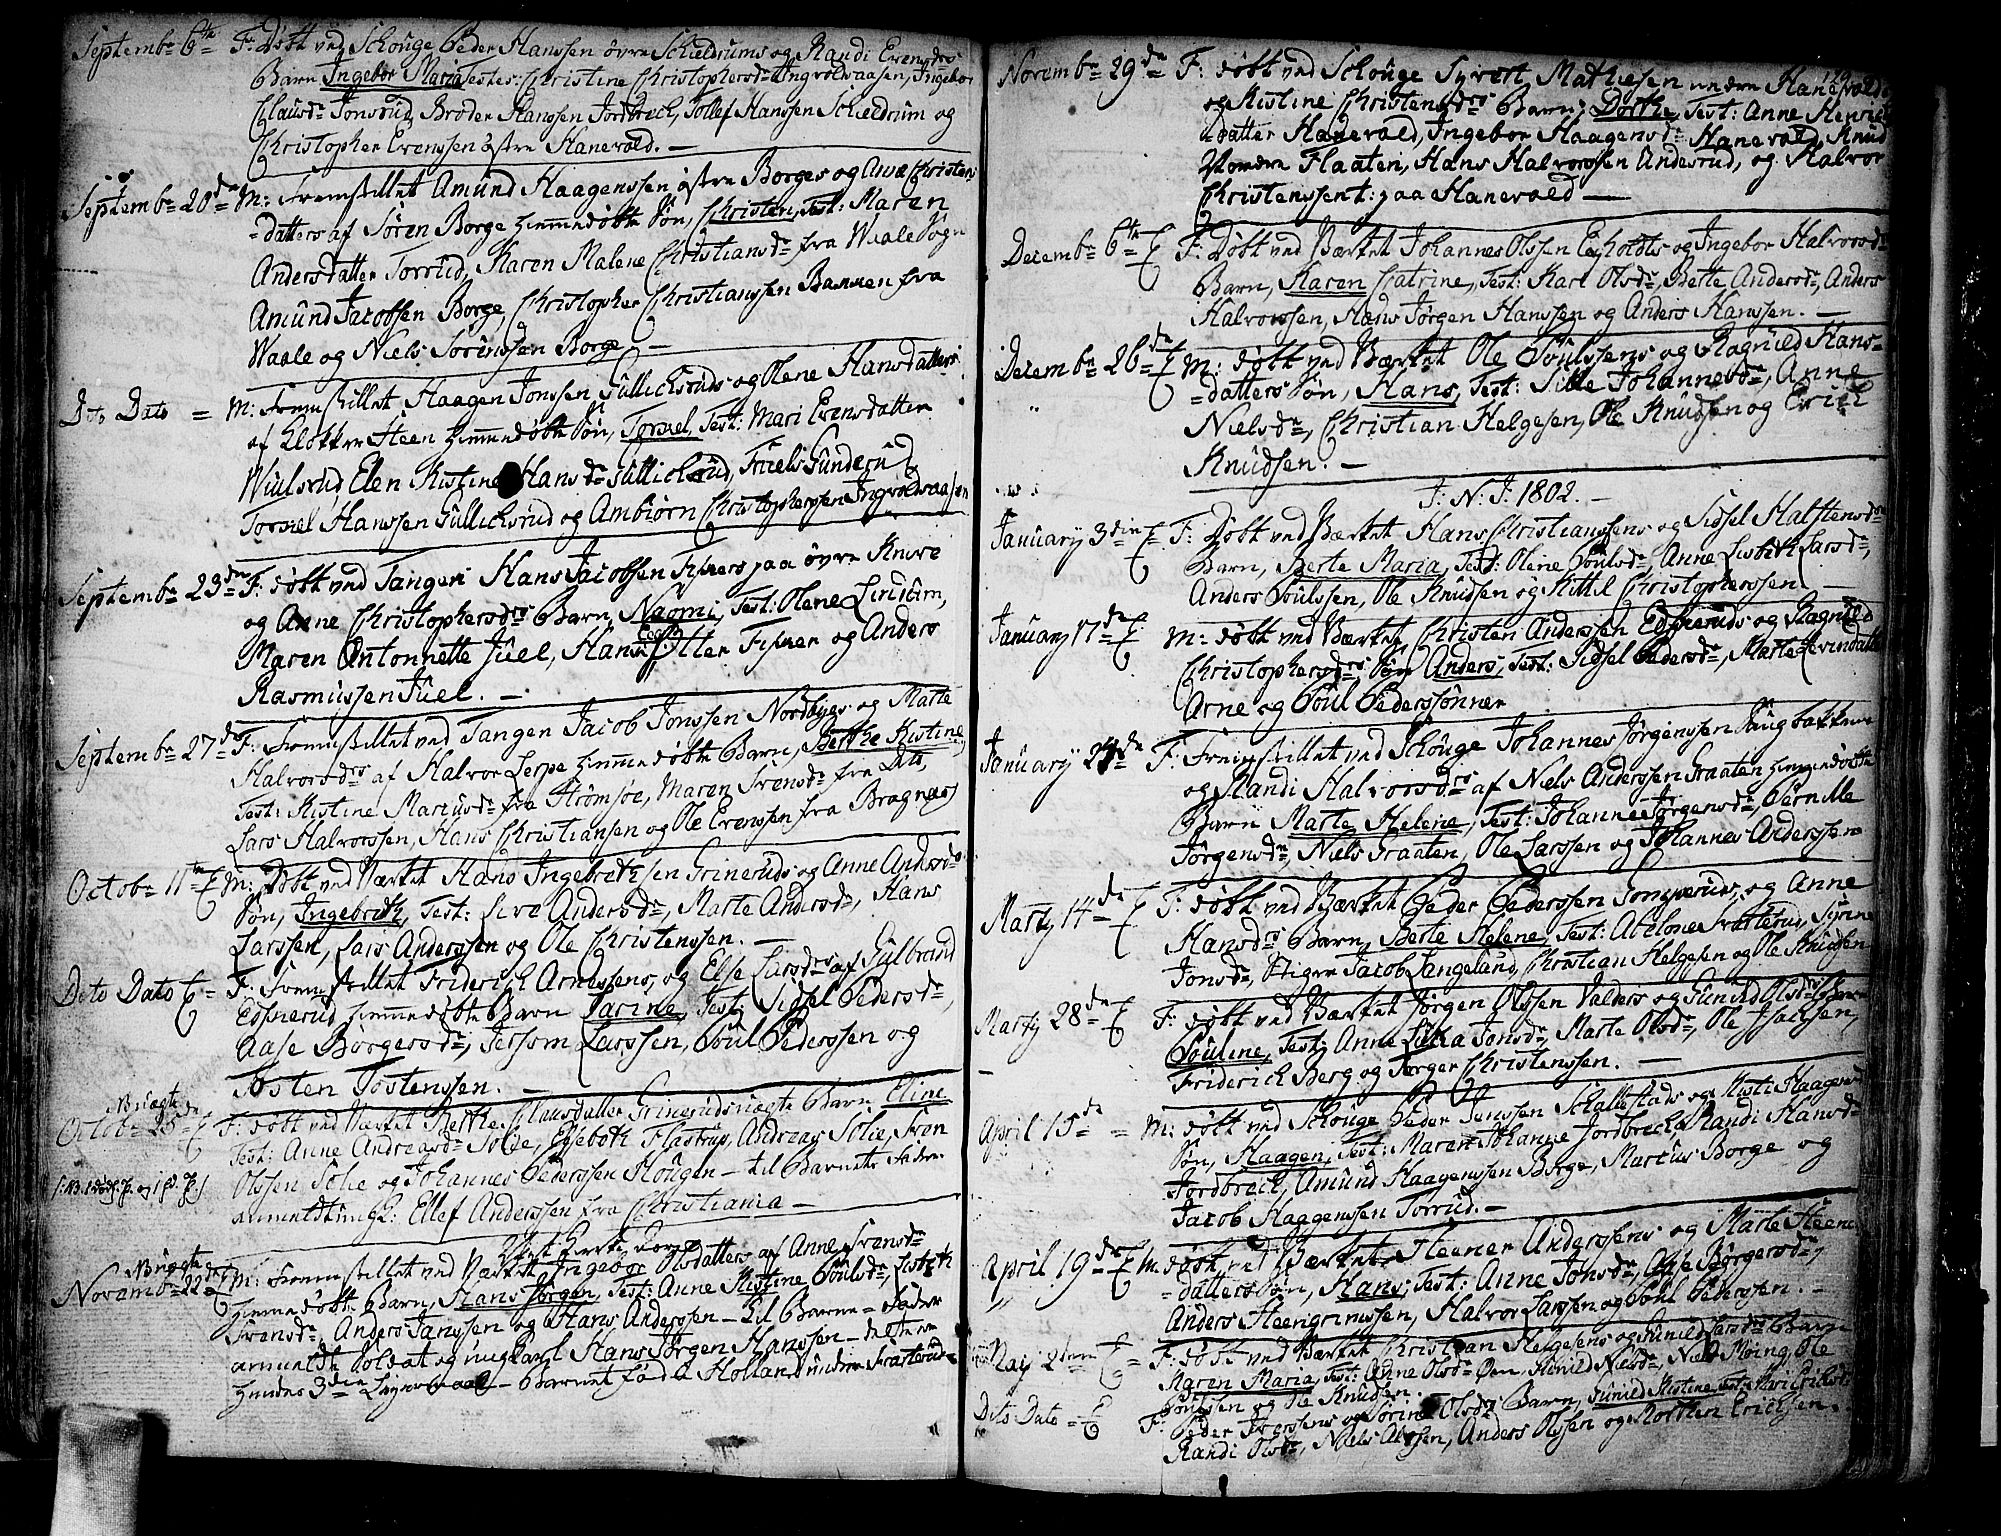 Septembr 6te F: Døbt ved Schouge Peder Hanssen øvre Schieldrums og Randi Evensdrs
Barn Ingebor Maria Testes: Christine Christophersdr Ingvoldsaasen, Ingebor
Clausdr Tonsrud, Broder Hanssen Jordbrech, Tollef Hanssen Schieldrum og
Christopher Evenssen østre Hanevold. —
Septembr 20de M: Fremstillet Amund Haagenssen østre Borges og Anne Christens
datters af Søren Borge hiemmedøbte Søn, Christen, Test: Maren
Andersdatter Torrud, Karen Malene Christiansdr fra Waale Sogn
Amund Jacobsen Borge, Christopher Christianssen Bannen fra
Waale og Niels Sørenssen Borge —
Dito Dato = M: Fremstillet Haagen Jonssen Gullichsruds og Olene Hansdatters
af Klokker Steen hiemmedøbte Søn, Torsel, Test: Mari Evensdatter
Wiulsrud, Elen Kistine Hansdr Gullichsrud, Truels Gunderud,
Torsel Hanssen Gullichsrud og Ambiørn Christopherssen Ingvoldsaasen
Septembr 23de F: døbt ved Tangen Hans Jacobsen Fiskers paa øvre Knive
og Anne Christophersdrs Barn, Naomi, Test: Olene Lindum,
Maren Antonnette Juel, Hans Otter Fisker og Anders
Rasmussen Juel. —
Septembr 27de F: Fremstillet ved Tangen Jacob Jonssen Nordbyes og Marte
Halvorsdrs af Halvor Lerpe hiemmedøbte Barn, Berthe Kistine,
Test: Kistine Marcusdr fra Strømsøe, Maren Svensdr fra Dito,
Lars Halvorssen, Hans Christiansen og Ole Evenssen fra Bragnæs
Octobr 11te M: Døbt ved Værket Hans Ingebrethsen Grineruds og Anne Andersdrs
Søn, Ingebreth, Test: Live Andersdr, Marte Andersdr, Hans
Larssen, Lars Anderssen og Ole Christenssen. —
Dito Dato F: Fremstillet Friderich Arnessens, og Else Larsdrs af Gulbrand
Edsnerud hiemmedøbte Barn Larine, Test: Sidsel Pedersdr,
Aase Børgersdr, Jersom Larssen, Poul Pederssen og
Tosten Tostenssen. —
NB: uægte
Octobr 25de F: døbt ved Værket Berthe Clausdatter Grineruds uægte Barn Eline
Test: Anne Andreasdr Solie, Elsebeth Flastrup, Andreas Solie, Sven
Olssen Solie og Johannes Pederssen Hougen — til Barnets Fader
anmeldt Ungk: Ellef Anderssen fra Christiania —
NB uægte
Novembr 22de M: Fremstillet ved Værket Ingebor Olsdatters af Anne Svensdr
hiemmedøbte Barn, Hans Jørgen, Test: Anne Kistine Poulsdr, Lisbeth
Svensdr, Anders Janssen og Hans Anderssen — Til Barne-Fader
anmeldt Soldat og ungkarl Hans Jørgen Hanssen — dette er
hendes 3die Leyermaal — Barnet født à Holland under Frasterud
Novembr 29de F: døbt ved Schouge Syvert Mathiesen nedre Hanevolds
og Kistine Christensdrs Barn; Dorthe, Test: Anne Henrichs
datter Hanevold, Ingebor Haagensdr Hanevold, Knud
Flaaten, Hans Halvorssen Anderud, og Halvor
Christenssen t: paa Hanevold —
Decembr 6te F: Døbt ved Værket Johannes Olssen Egholdts og Ingebor Halvorsdrs
Barn, Karen Catrine, Test: Kari Olsdr, Berte Andersdr, Anders
Halvorssen, Hans Jørgen Hanssen og Anders Hanssen. —
Decembr 26de M: døbt ved Værket Ole Poulssens og Ragnild Hans-
datters Søn, Hans, Test: Sille Johannesdr, Anne
Nielsdr, Christian Helgesen, Ole Knudsen og Erich
Knudsen. —
J: N: J: 1802. —
January 3die F: Døbt ved Værket Hans Christianssens og Sidsel Halstensdrs
Barn, Berte Maria, Test: Olene Poulsdr, Anne Lisbeth Larsdr,
Anders Poulssen, Ole Knudsen og Kittil Christopherssen. —
January 17de M: døbt ved Værket, Christen Anderssen Edsneruds og Ragnild
Christophersdrs Søn Anders, Test: Sidsel Pedersdr, Marte Evindatter
Arne og Poul Pederssønner
January 24de F: Fremstillet ved Schouge Johannes Jørgenssen Haugbakkens
og Randi Halvorsdrs af Niels Anderssen Graaten hiemmedøbte
Barn Marte Helene, Test: Johanne Jørgensdr Pernille
Jørgensdr, Niels Graaten, Ole Larssen og Johannes Anderssen
Marty 14de F: døbt ved Værket Peder Pederssen og Anne
Hansdrs Barn, Berte Helene, Test: Abelone Frasterud, Syrine
Jonsdr, Stiger Jacob Langelund, Christian Helgesen og Ole Knudsen
Marty 28de F: døbt ved Værket Jørgen Olssen Valders og Gunild Olsdrs Barn
Pouline, Test: Anne Litha Jonsdr, Marte Olsdr, Ole Isachsen,
Friderich Berg og Jørger Christenssen. —
April 15de = M: døbt ved Schouge Peder Jenssen Schallestads og Kisti Haagensdrs
Søn, Haagen, Test: Maren Johanne Jordbrech, Randi Hansdr
Jordbrech, Amund Haagenssen Borge, Marcus Borge og
Jacob Haagenssen Torrud. —
April 19de M: døbt ved Værket Steener Anderssens og Marte Steener
datters Søn, Hans, Test: Anne Jonsdr, Aase Børgersdr,
Anders Steengrimssen, Halvor Larssen og Poul Pederssen. —
May 2den = F: døbt ved Værket Christian Helgesens og Gunild Larsdrs Barn
Maren Maria, Test: Anne Olsdr Øen, Gunild Nielsdr, Niels Moing, Ole
Poulssen og Ole Knudsen.
Dito Dato = F: Peder Iverssens og Sørine Olsdrs Barn, Gunild Kistine, Test: Kari Erichsdr
Randi Olsdr, Niels Abelsen, Anders Olssen og Morthen Erichsen.